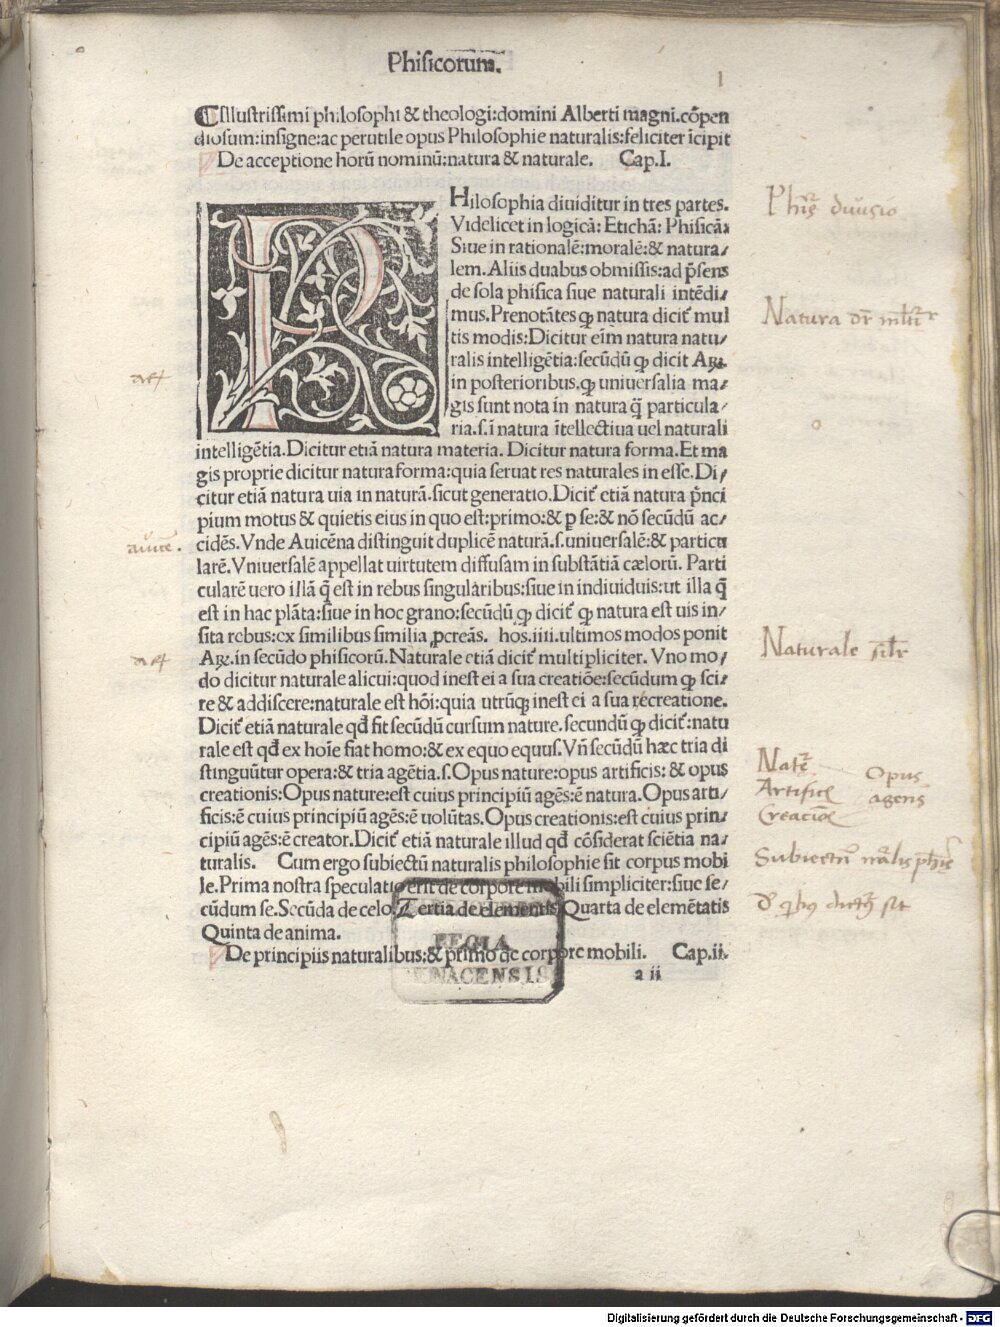 Phisicorum.
1
Illustrissimi philosophi & theologi: domini Alberti magni. cõpen
diosum: insigne: ac perutile opus Philosophie naturalis: feliciter ĩcipit
De acceptione horũ nominũ: natura & naturale. Cap.I.
PHilosophia diuiditur in tres partes.
Videlicet in logicã: Etichã: Phisicã:
Siue in rationalẽ: moralẽ: & natura/
lem. Aliis duabus obmissis: ad p̃sens
de sola phisica siue naturali intẽdi/
mus. Prenotãtes ꝙ natura dicit᷑ mul
tis modis: Dicitur eĩm natura natu/
ralis intelligẽtia: secũdũ ꝙ dicit Aꝶ.
in posterioribus. ꝙ uniuersalia ma/
gis sunt nota in natura q̃ particula/
ria. s. ĩ natura ĩtellectiua uel naturali
intelligẽtia. Dicitur etiã natura materia. Dicitur natura forma. Et ma
gis proprie dicitur natura forma: quia seruat res naturales in esse. Di/
citur etiã natura uia in naturã. sicut generatio. Dicit᷑ etiã natura p̃nci
pium motus & quietis eius in quo est: primo: & ꝑ se: & nõ secũdũ ac/
cidẽs. Vnde Auicẽna distinguit duplicẽ naturã. s. uniuersalẽ: & particu
larẽ. Vniuersalẽ appellat uirtutem diffusam in substãtiã cælorũ. Parti
cularẽ uero illã q̃ est in rebus singularibus: siue in indiuiduis: ut illa q̃
est in hac plãta: siue in hoc grano: secũdũ ꝙ dicit᷑ ꝙ natura est uis in/
sita rebus: ex similibus similia ꝓcreãs. hos. iiii. ultimos modos ponit
Aꝶ. in secũdo phisicorũ. Naturale etiã dicit᷑ multipliciter. Vno mo/
do dicitur naturale alicui: quod inest ei a sua creatiõe: secũdum ꝙ sci/
re & addiscere: naturale est hõi: quia utrũqꝫ inest ei a sua recreatione.
Dicit᷑ etiã naturale qđ fit secũdũ cursum nature. secundũ ꝙ dicit᷑: natu
rale est qđ ex hoĩe fiat homo: & ex equo equus. Vñ secũdũ hæc tria di
stinguũtur opera: & tria agẽtia. s. Opus nature: opus artificis: & opus
creationis: Opus nature: est cuius principiũ agẽs: ẽ natura. Opus arti/
ficis: ẽ cuius principiũ agẽs: ẽ uolũtas. Opus creationis: est cuius prin/
cipiũ agẽs: ẽ creator. Dicit᷑ etiã naturale illud qđ cõsiderat sciẽtia na/
turalis. Cum ergo subiectũ naturalis philosophie sit corpus mobi
le. Prima nostra speculatio erit de corpore mobili simpliciter: siue se/
cũdum se. Secũda de celo. Tertia de elementis Quarta de elemẽtatis
Quinta de anima.
De principiis naturalibus: & primo de corpore mobili. Cap.ii.
a ii
REGIA
MONACENSIS
diuisio
Natura
Naturale
Artificis
Creacionis
Opus
agens
Subiectum
Digitalisierung gefördert durch die Deutsche Forschungsgemeinschaft - DFG